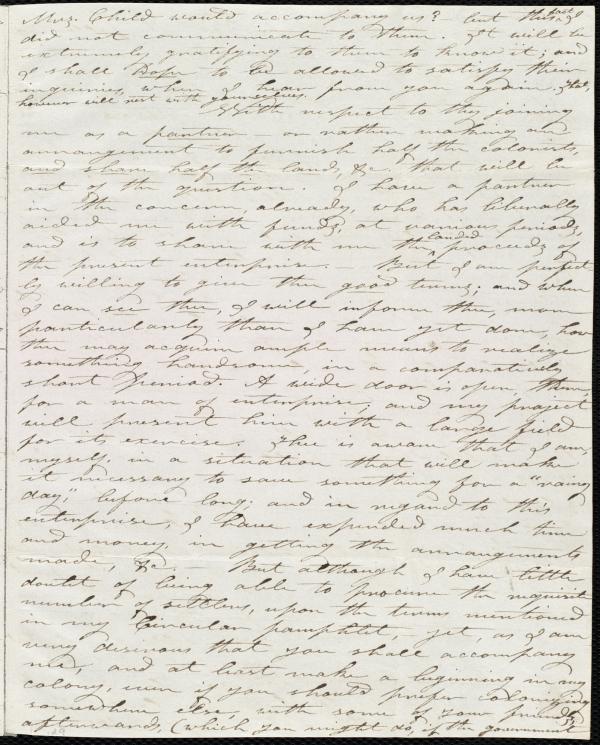 Mrs. Child would accompany us? but this fact I
did not communicate to them. It will be
extremely gratifying to them to know it; and
I shall hope to be allowed to satisfy their
inquiries, when I hear from you again. That,
however will rest with yourselves.
With respect to thy joining
me as a partner or rather making an
arrangement to furnish half the colonists,
and share half the land, &c. that will be
out of the question. I have a partner
in the concern, already, who has liberally
aided me with funds, at various periods,
and is to share with me the landed proceeds of
the present enterprise. — But I am perfect-
ly willing to give thee good terms; and when
I can see thee, I will inform thee, more
particularly than I have yet done, how
thee may acquire ample means to realize
something handsome, in a comparatively
short period. A wide door is open, there,
for a man of enterprise; and my project
will present him with a large field
for its exercise. Thee is aware that I am,
myself, in a situation that will make
it necessary to save something for a "rainy
day," before long: and in regard to this
enterprise, I have expended much time
and money in getting the arrangements
made, &c. — But although I have little
doubt of being able to procure the requisite
number of settlers, upon the terms mentioned
in my Circular pamphlet, yet, as I am
very desirous that you shall accompany
me, and at least make a beginning in my
colony, even if you should prefer colonizing
somewhere else, with some of your friends,
afterwards, (which you might do, if the government